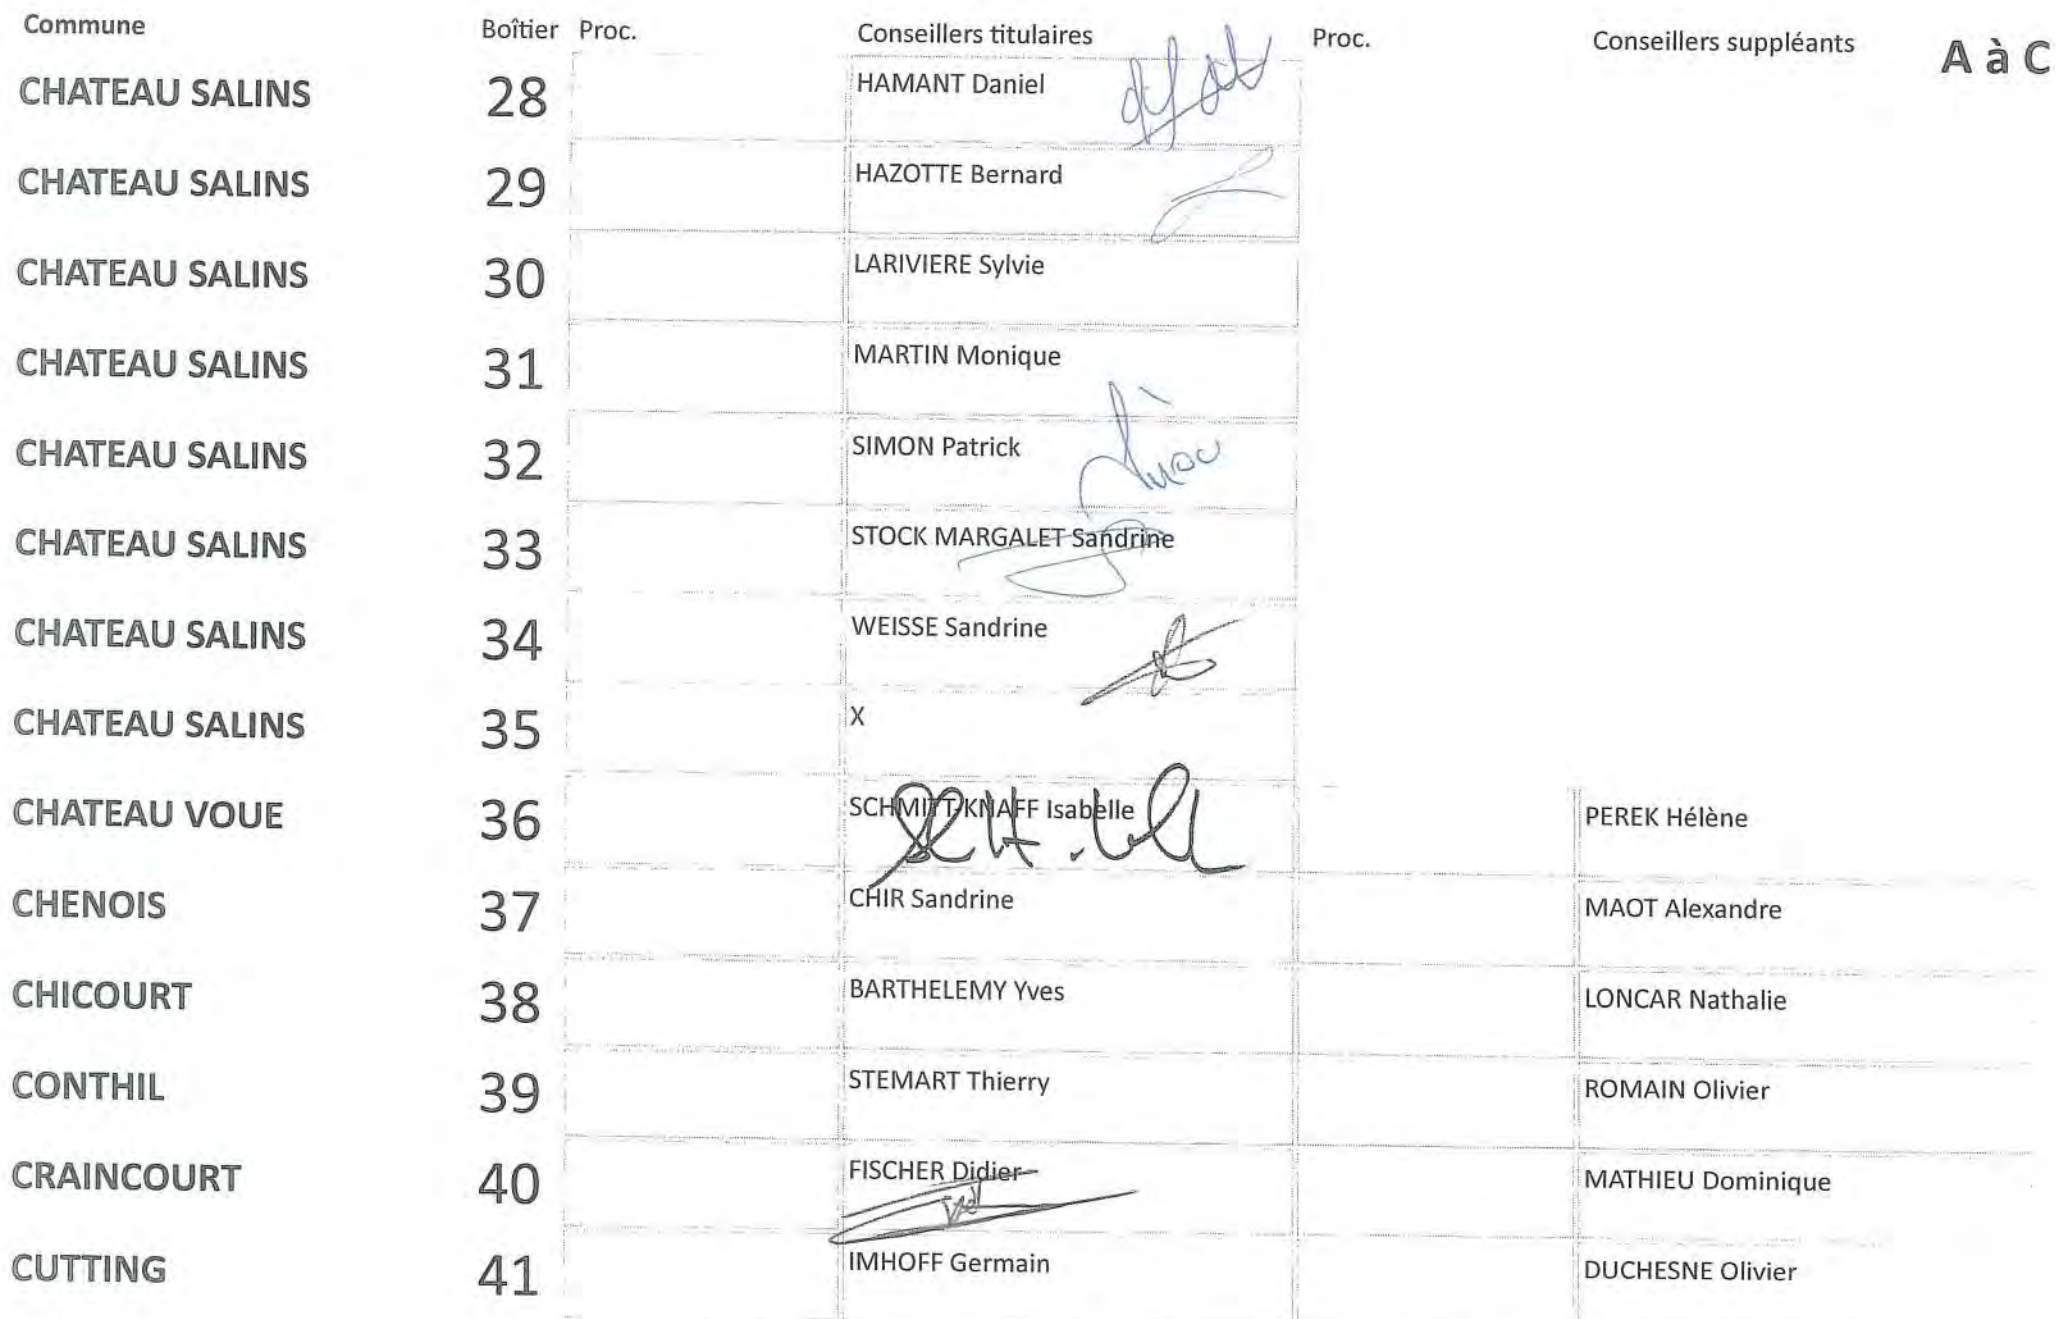 Commune Boîtier Proc. Conseillers titulaires Proc. Conseillers suppléants A à C
CHATEAU SALINS 28 HAMANT Daniel
CHATEAU SALINS 29 HAZOTTE Bernard
CHATEAU SALINS 30 LARIVIERE Sylvie
CHATEAU SALINS 31 MARTIN Monique
CHATEAU SALINS 32 SIMON Patrick
CHATEAU SALINS 33 STOCK MARGALET Sandrine
CHATEAU SALINS 34 WEISSE Sandrine
CHATEAU SALINS 35 X
CHATEAU VOUE 36 SCHMITT-KNAFF Isabelle PEREK Hélène
CHENOIS 37 CHIR Sandrine MAOT Alexandre
CHICOURT 38 BARTHELEMY Yves LONCAR Nathalie
CONTHIL 39 STEMART Thierry ROMAIN Olivier
CRAINCOURT 40 FISCHER Didier MATHIEU Dominique
CUTTING 41 IMHOFF Germain DUCHESNE Olivier